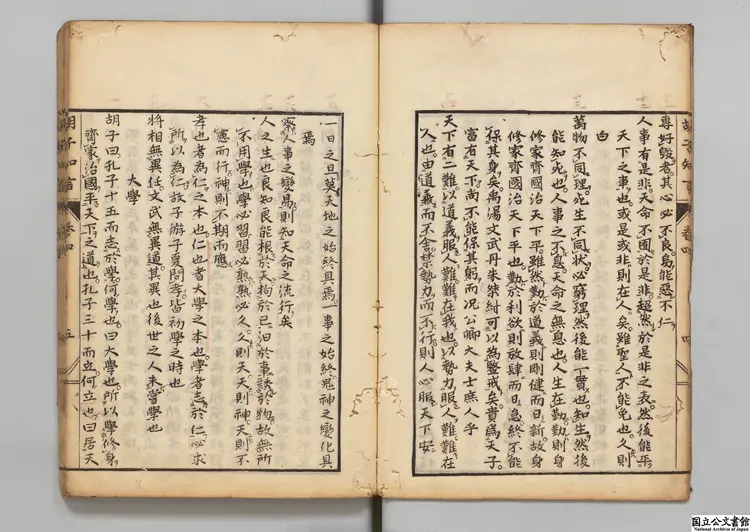 胡子知言
卷四
專好毀者其心必不良烏能惡不仁
人事有是非天命不囿於是非超然於是非之表然後能平
天下之事也或是或非則在人矣雖聖人不能免也久則
白
萬物不同理死生不同狀必窮理然後能一貫也知生然後
能知死也人事之不息天命之無息也人生在勤勤則身
修家齊國治天下平雖然勤於道義則剛健而日新故身
修家齊國治天下平也勤於利欲則放肆而日怠終不能
保其身矣禹湯文武丹朱桀紂可以為鑒戒矣貴為天子
富有天下尚不能保其躬而况公卿大夫士庶人乎
天下有二難以道義服人難難在我也以勢力服人難難在
人也由道義而不舍禁勢力而不行則人心服天下安
一日之旦莫天地之始終具焉一事之始終鬼神之變化具
焉
察人事之變易則知天命之流行矣
人之生也良知良能根於天拘於已汩於事誘於物故無所
不用學也學必習習必熟熟必久久則天天則神天則不
慮而行神則不期而應
孝也者為仁之本也仁也者大學之本也學者志於仁必求
所以為仁故子游子夏問孝皆初學之時也
將相無異任文武無異道其異也後世之人未嘗學也
大學
胡子曰孔子十五而志於學何學也曰大學也所以學修身
齊家治國平天下之道也孔子三十而立何立也曰居天
胡子知言
卷四
五
国立公文書館
National Archives of Japan